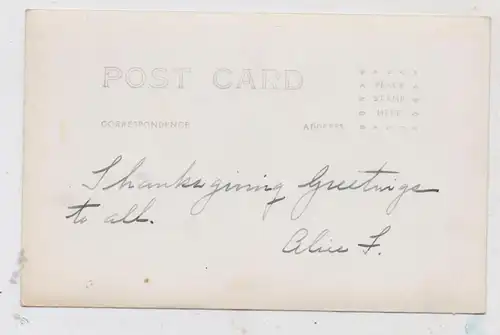 POST CARD
PLACE
STAMP
HERE
CORRESPONDENCE
ADDRESS
Thanksgiving Greetings
to all.
Alice F.